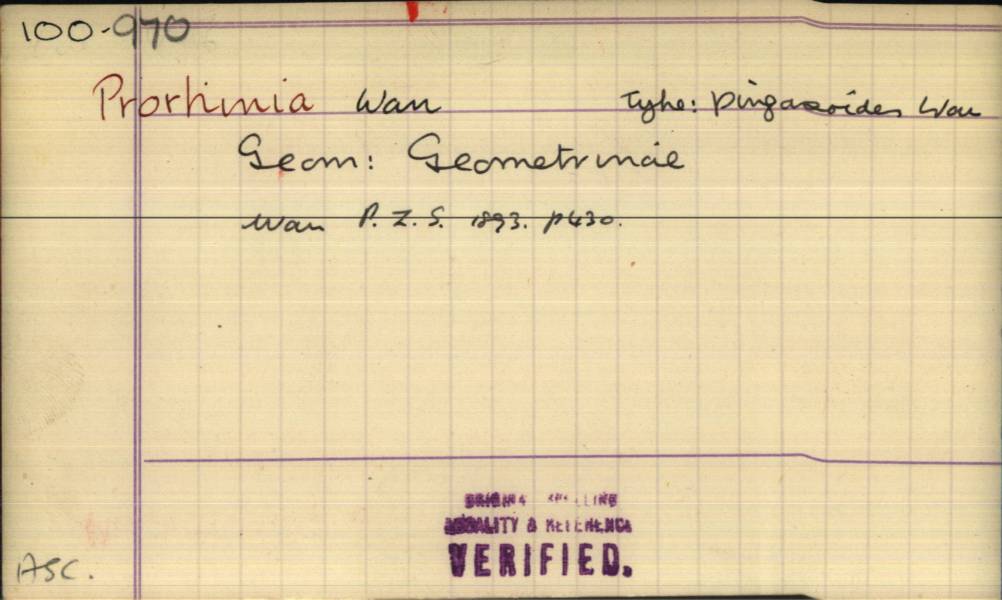 100-970
Prorhinia Warr Type: pingasoides Warr
Geom: Geometrinae
Warr P. Z. S. 1893. p430.
ORIGINAL SPELLING
LOCALITY & REFERENCE
VERIFIED.
ASC.